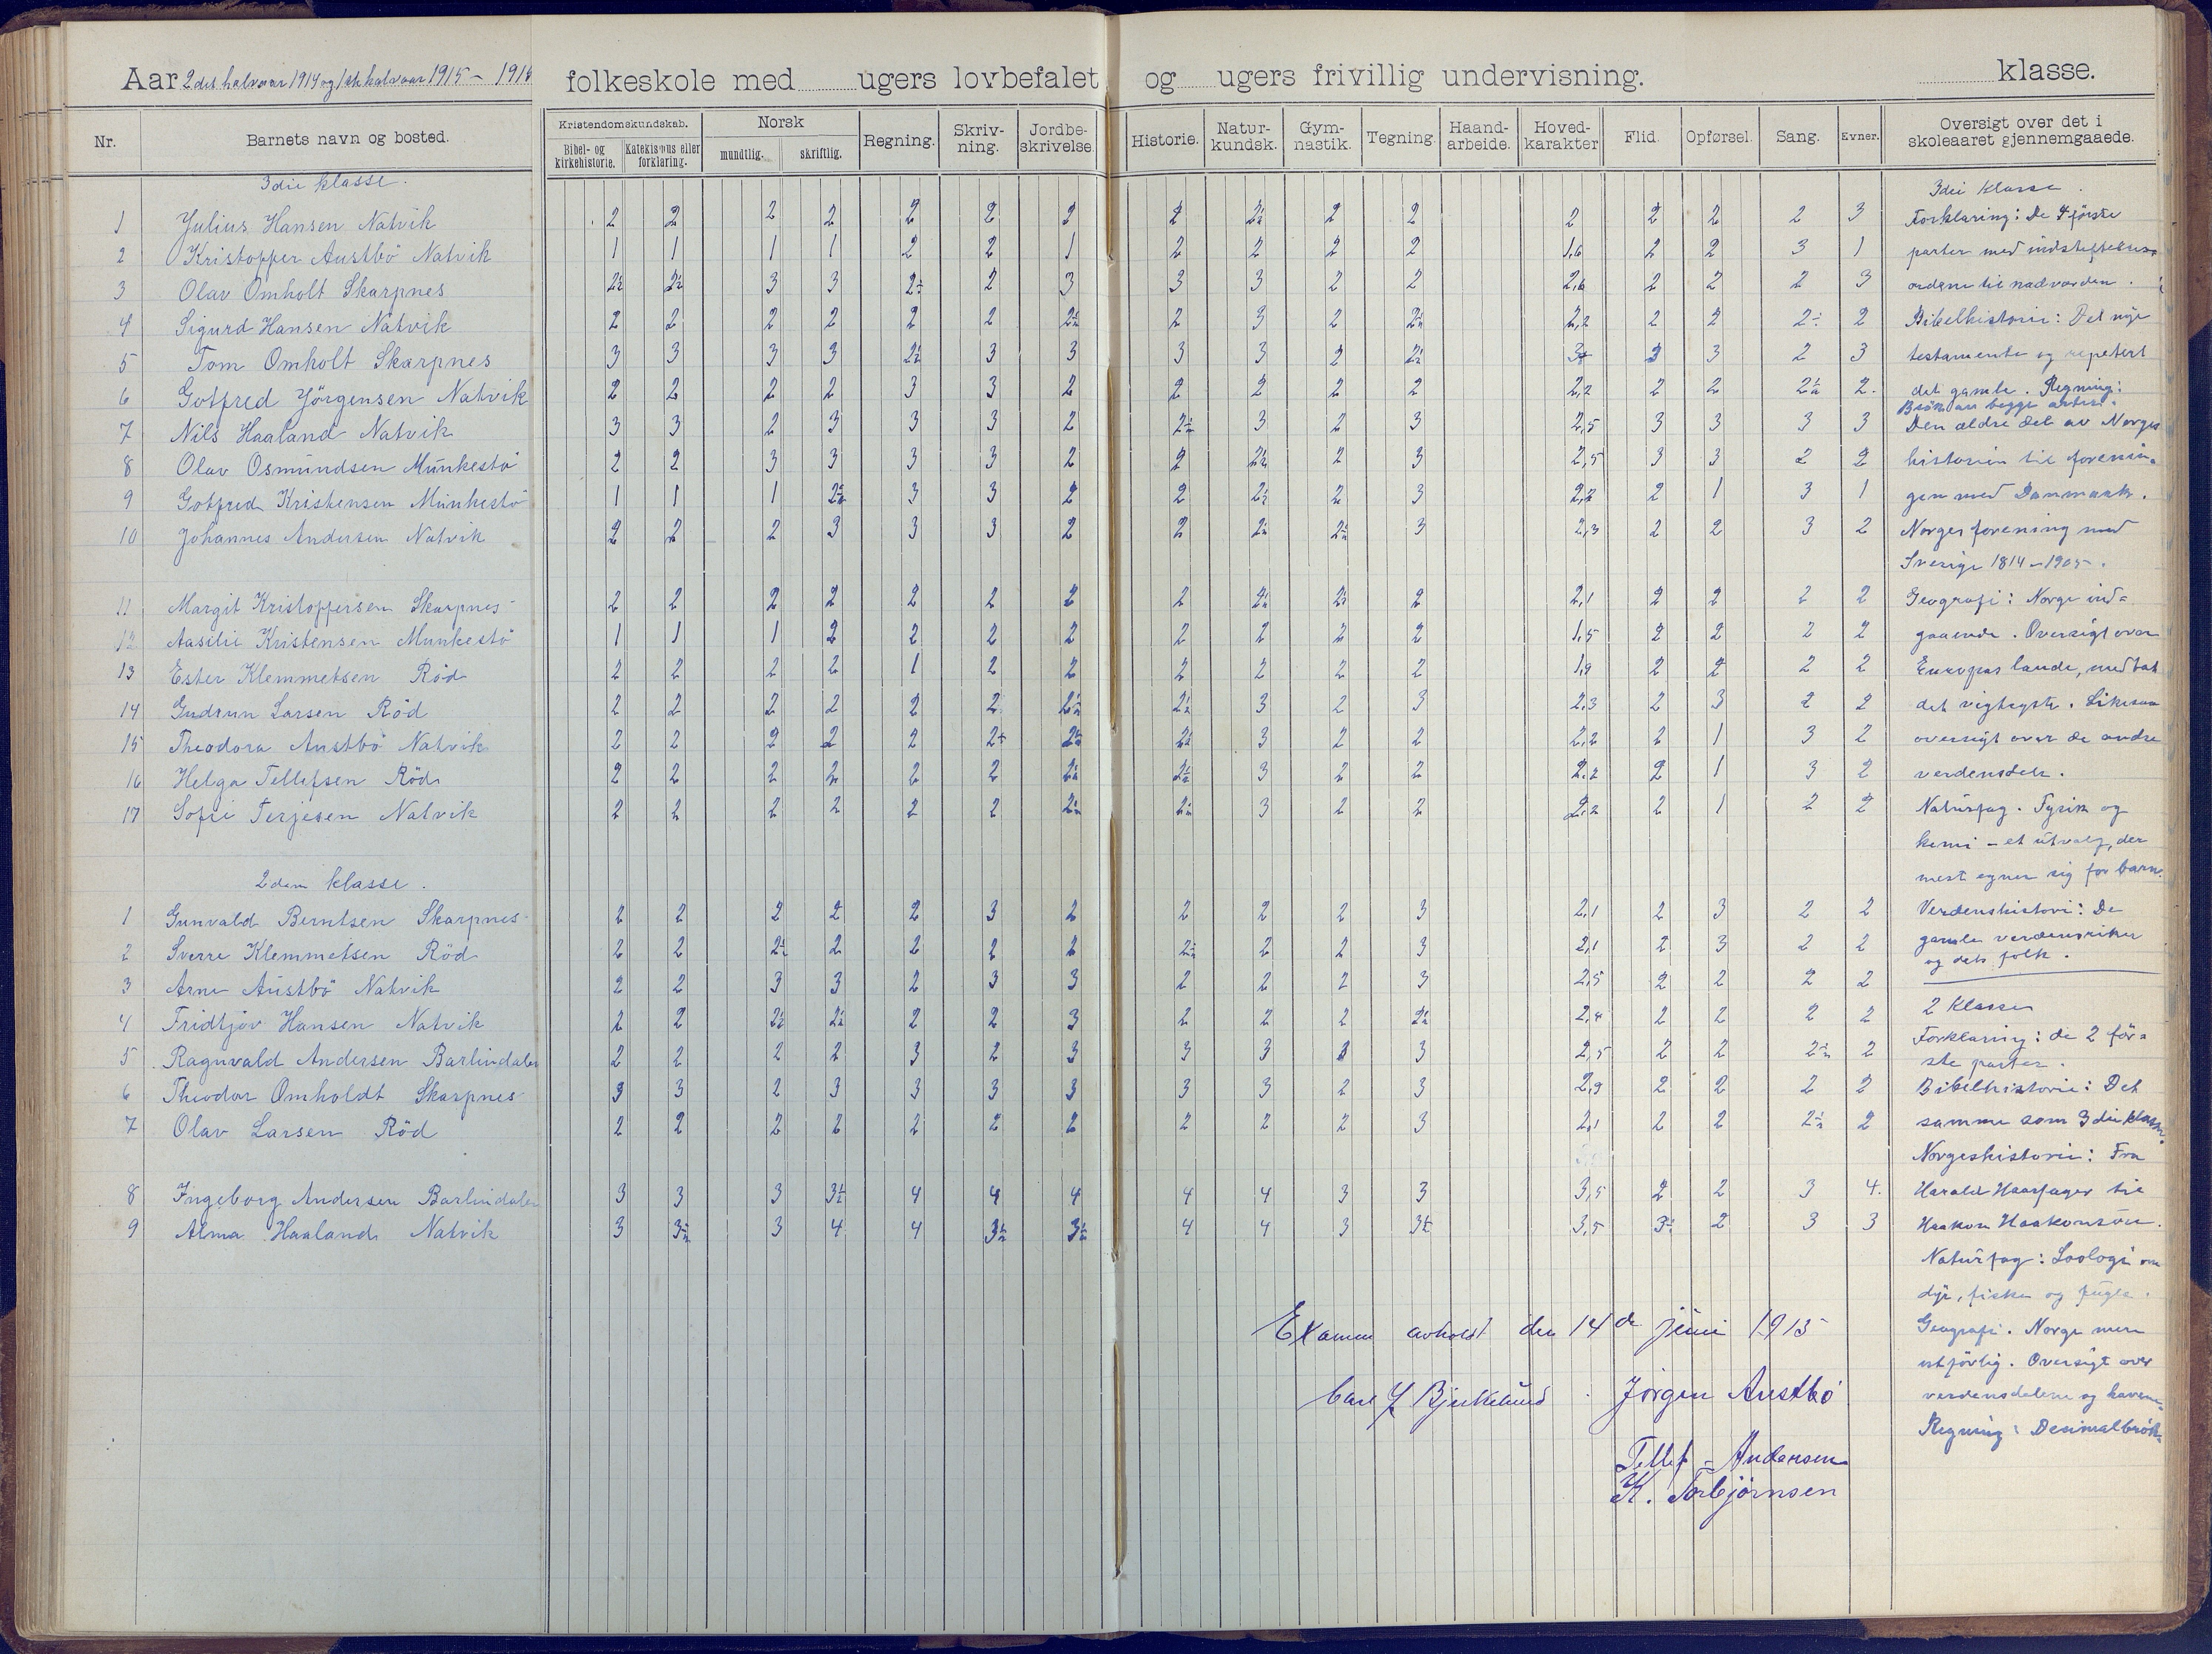 Aar 2det halvaar 1914 og 1ste halvaar 1915 - 1916 folkeskole med ugers lovbefalet og ugers frivillig undervisning. klasse.
Nr. Barnets navn og bosted. Kristendomskundskab. Norsk Regning. Skriv-ning. Jordbe-skrivelse. Historie. Natur-kundsk. Gym-nastik. Tegning. Haand-arbeide. Hoved-karakter Flid. Opførsel. Sang. Evner. Oversigt over det i skoleaaret gjennemgaaede.
Bibel- og kirkehistorie. Katekismus eller forklaring. mundtlig. skriftlig.
3die klasse.
1 Julius Hansen Natvik 2 2 2 2 2 2 2 2 2÷ 2 2 2 2 2 2 3
2 Kristoffer Austbö Natvik 1 1 1 1 2 2 1 2 2 2 2 1,6 2 2 3 1
3 Olav Omholt Skarpnes 2½ 2½ 3 3 2÷ 2 3 3 3 2 2 2,6 2 2 2 3
4 Sigurd Hansen Natvik 2 2 2 2 2 2 2½ 2 3 2 2½ 2,2 2 2 2÷ 2
5 Tom Omholt Skarpnes 3 3 3 3 2½ 3 3 3 3 2 2½ 3 3 3 2 3
6 Gotfred Jörgensen Natvik 2 2 2 2 3 3 2 2 2 2 2 2,2 2 2 2½ 2
7 Nils Haaland Natvik 3 3 2 3 3 3 2 2½ 3 2 3 2,5 3 3 3 3
8 Olav Osmundsen Munkestö 2 2 3 3 3 3 2 2 2½ 2 3 2,5 3 3 2 2
9 Gotfred Kristensen Munkestö 1 1 1 2½ 3 3 2 2 2½ 2 3 2,2 2 1 3 1
10 Johannes Andersen Natvik 2 2 2 3 3 3 2 2 2½ 2½ 3 2,3 2 2 3 2
11 Margit Kristoffersen Skarpnes 2 2 2 2 2 2 2 2 2½ 2½ 2 2,1 2 2 2 2
12 Aasilie Kristensen Munkestö 1 1 1 2 2 2 2 2 2 2 2 1,5 2 2 2 2
13 Ester Klemmetsen Röd 2 2 2 2 1 2 2 2 2 2 2 1,9 2 2 2 2
14 Gudrun Larsen Röd 2 2 2 2 2 2 2½ 2½ 3 2 3 2,3 2 3 2 2
15 Theodora Austbö Natvik 2 2 2 2 2 2÷ 2½ 2½ 3 2 2 2,2 2 1 3 2
16 Helga Tellefsen Röd 2 2 2 2 2 2 2½ 2½ 3 2 2 2,2 2 1 3 2
17 Sofie Terjesen Natvik 2 2 2 2 2 2 2½ 2½ 3 2 2 2,2 2 1 2 2
2den klasse.
1 Gunvald Berntsen Skarpnes 2 2 2 2 2 3 2 2 2 2 3 2,1 2 3 2 2
2 Sverre Klemmetsen Röd 2 2 2½ 2 2 2 2 2½ 2 2 3 2,1 2 3 2 2
3 Arne Austbö Natvik 2 2 3 3 2 3 3 2 2 2 3 2,5 2 2 2 2
4 Fridtjov Hansen Natvik 2 2 2½ 2½ 2 2 3 2 2 2 2½ 2,4 2 2 2 2
5 Ragnvald Andersen Barlindalen 2 2 2 2 3 2 3 3 3 3 3 2,5 2 2 2½ 2
6 Theodor Omholdt Skarpnes 3 3 2 3 3 3 3 3 3 2 3 2,9 2 2 2 2
7 Olav Larsen Röd 2 2 2 2 2 2 2 2 2 2 3 2,1 2 2 2½ 2
8 Ingeborg Andersen Barlindalen 3 3 3 3½ 4 4 4 4 4 3 3 3,5 2 2 3 4.
9 Alma Haaland Natvik 3 3½ 3 4 4 3½ 3½ 4 4 3 3½ 3,5 3÷ 2 3 3
3die klasse.
Forklaring: De 4 förste
parter med indstiftelses-
ordene til nadverden.
Bibelhistorie: Det nye
testamente og repetert
det gamle. Regning:
Brök av begge arter.
Den ældre del av Norges
historien til forenin-
gen med Danmark.
Norges forening med
Sverige 1814-1905.
Geografi: Norge ind-
gaaende. Oversigt over
Europas lande, medtat
det vigtigste. Likesaa
oversigt over de andre
verdensdele.
Naturfag. Fysik og
kemi - et utvalg, der
mest egner sig for barn.
Verdenshistorie: De
gamle verdensriker
og dets folk.
2 klasse
Forklaring: de 2 för-
ste parter.
Bibelhistorie: Det
samme som 3die klasse.
Norgeshistorie: Fra
Harald Haarfager til
Haakon Haakonsön.
Naturfag: Zoologi om
dyr, fiske og fugle.
Geografi. Norge mere
utförlig. Oversigt over
verdensdelene og havene.
Regning: Desimalbrök.
Examen avholdt den 14de juni 1915
Carl J Bjerkelund Jørgen Austbö
Tellef Andersen
K. Torbjørnsen